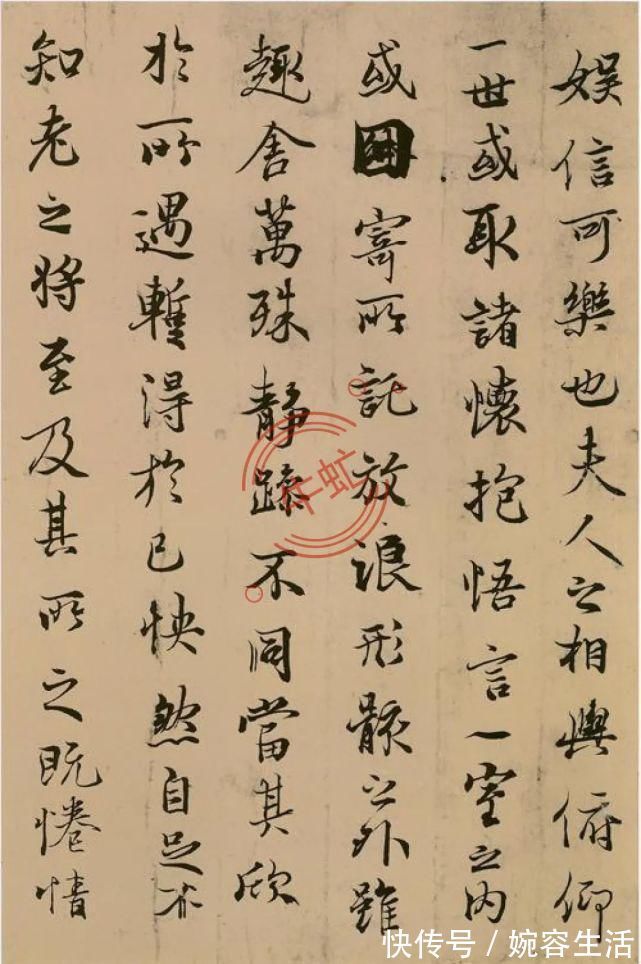 娱信可樂也夫人之相與俯仰
一世或取諸懷抱悟言一室之內
或因寄所託放浪形骸之外雖
趣舍萬殊静躁不同當其欣
於所遇暫得於己怏然自足不
知老之將至及其所之既惓情
千虹
快传号/婉容生活